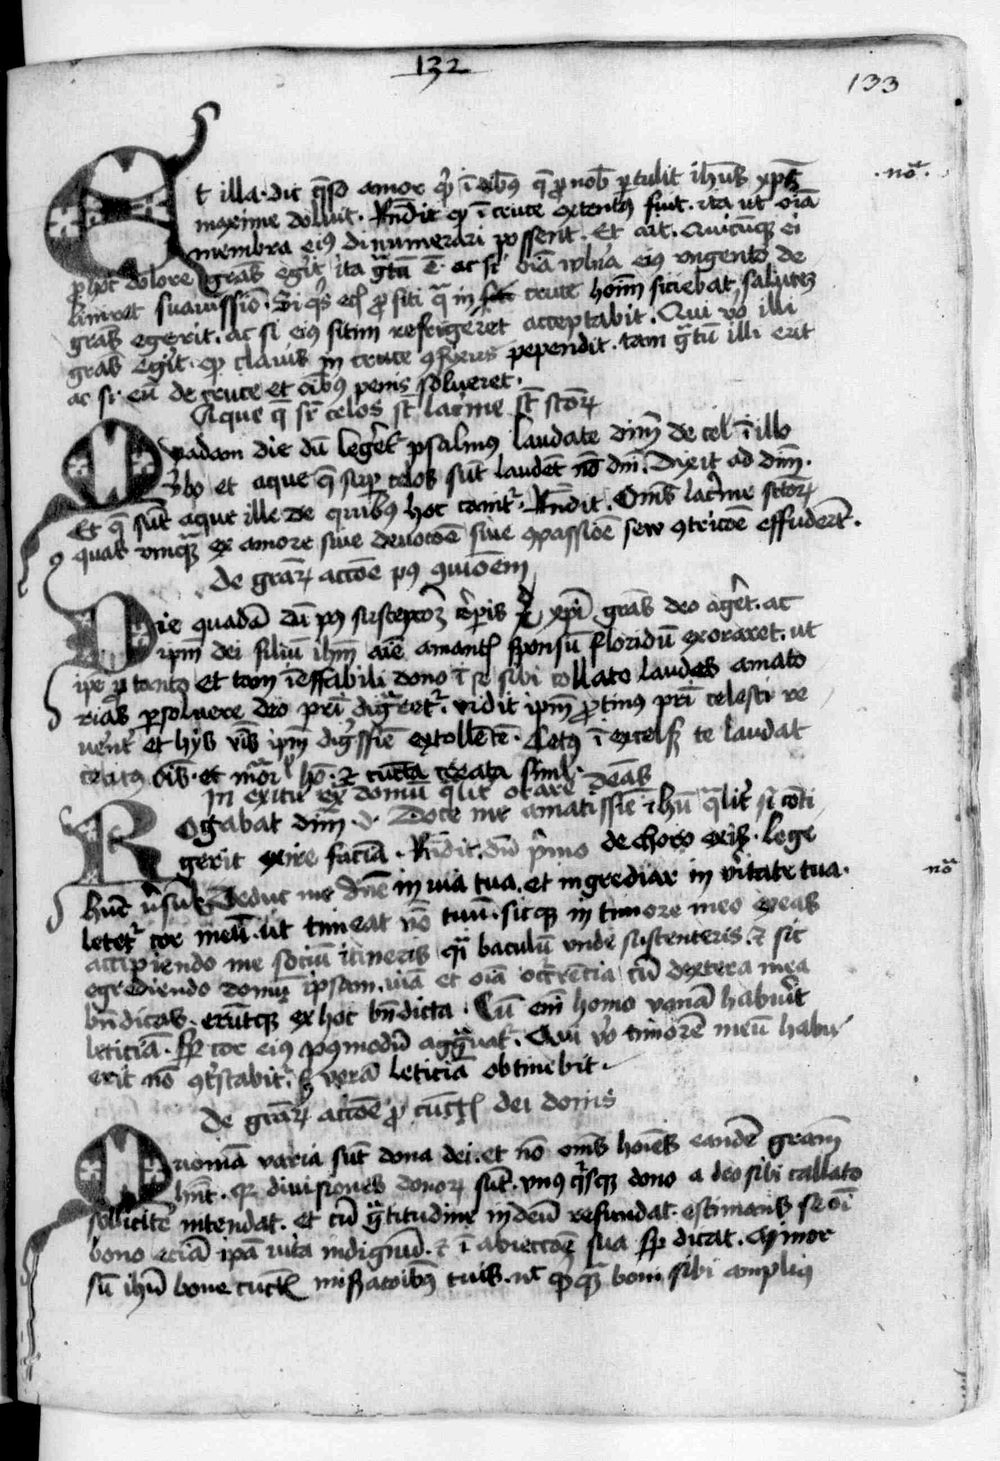 132
133
Et illa. dic q̄so amor q̇ ī oībꝰ q̄ ꝓ nob̄ ꝑtulit ihūs xp̄s
.nō.
maxime doluit. Rn̄dit ꝙ ī cruce extentꝰ fuit. ita ut oīa
membra eiꝰ dinumerari possent. Et ait. Quicūqꝫ ei
ꝓ hoc dolore gr̄as egit ita gͣtū ē. ac si oīa wlnͣa eiꝰ vngento de
liniret suauissīo. Si qͥs ecī ꝓ siti qͣ in cruce homī siciebat salutez
gr̄as egerit. ac si eiꝰ sitim refrigeret acceptabit. Qui vͦo illi
gr̄as egit. ꝙ clauis in cruce ꝯfixus pependit. tam gͣtū illi erit
ac si eū de cruce et oībꝰ penis solueret.
Aque q̄ sr̄ celos st̄ lacͥme st̄ sctōꝝ
Quadam die dū legeret psalmꝰ laudate dn̄m de cel ī illo
ỽbo et aque q̄ suꝑ celos sūt laudēt nō dn̄i. Dixit ad dn̄m.
Et q̄ sūt aque ille de quibꝰ hoc canitͬ. Rn̄dit. Oms̄ lacͥme sctōꝝ
quas vnqͣꝫ ex amore siue deuocōe siue ꝯpassiōe sew ꝯtricōe effuderūt.
De gr̄aꝝ accōe pꝰ ꝯmūiōem
Die quadā dū pꝰ susceptōꝫ corꝑis xp̄i gr̄as deo ageret. ac
ipm̄ dei filiū ihm̄ aīe amantꝭ sponsū floridū exoraret. ut
ip̄e ꝓ tanto et tam ieffabili dono ī se sibi collato laudes amato
rias ꝑsoluere deo pr̄i digͣretͬ. vidit ipm̄ ꝓtinus pr̄i celesti re
uēnt̄ et hys v̄bis ipm̄ digͥssīe extollētē. Letꝰ ī excelsꝭ te laudat
celitꝰ oīs. et morͣl hō. ⁊ cūcta creata siml̄.
In exitu ex domū qͣlit̄ orare debeas
Rogabat dn̄m .d. Doce me amatissīe ihū qͣlit̄ si conti
gerit exire faciā. Rn̄dit. dū pͥmo de choro exis. lege
nō
hūc ỽsūꝫ. Deduc me dn̄e in via tua. et ingrediar in ỽitate tua.
letetͬ cor meū. ut timeat nō tuū. sicqꝫ in timore meo exeas
accipiendo me sociū itineris qͣi baculū vnde sustenteris. ⁊ sic
egrediendo domū ipsam. viā et oīa occͬrēcia cū dextera mea
bn̄dicas. eruntqꝫ ex hoc bn̄dicta. Cū em̄ homo vanā habuͥt
leticiā. sꝑ cor eiꝰ pꝰmodū aggͣuat. Qui vͦo timorē meū habu
erit nō ꝯtͥstabitͬ. sꝫ verā leticiā obtinebit.
De gr̄aꝝ accōe ꝓ cūctꝭ dei donis
Quoniā varia sūt dona dei. et nō oms̄ hoīes eandē gram̄
hn̄t. qꝛ diuisiones donoꝝ sūt. vnusqͥsqꝫ dono a deo sibi callato
sollicite intendat. et cū gͣtitudine in deū refundat. estimans se oī
bono eciā ipa vita indignū. ⁊ ī abiectōe sua sꝑ dicat. Minor
sū ihū bone cūctꝭ misꝭacōibꝰ tuis. ut qͣꝫqͣꝫ boni sibi ampliꝰ